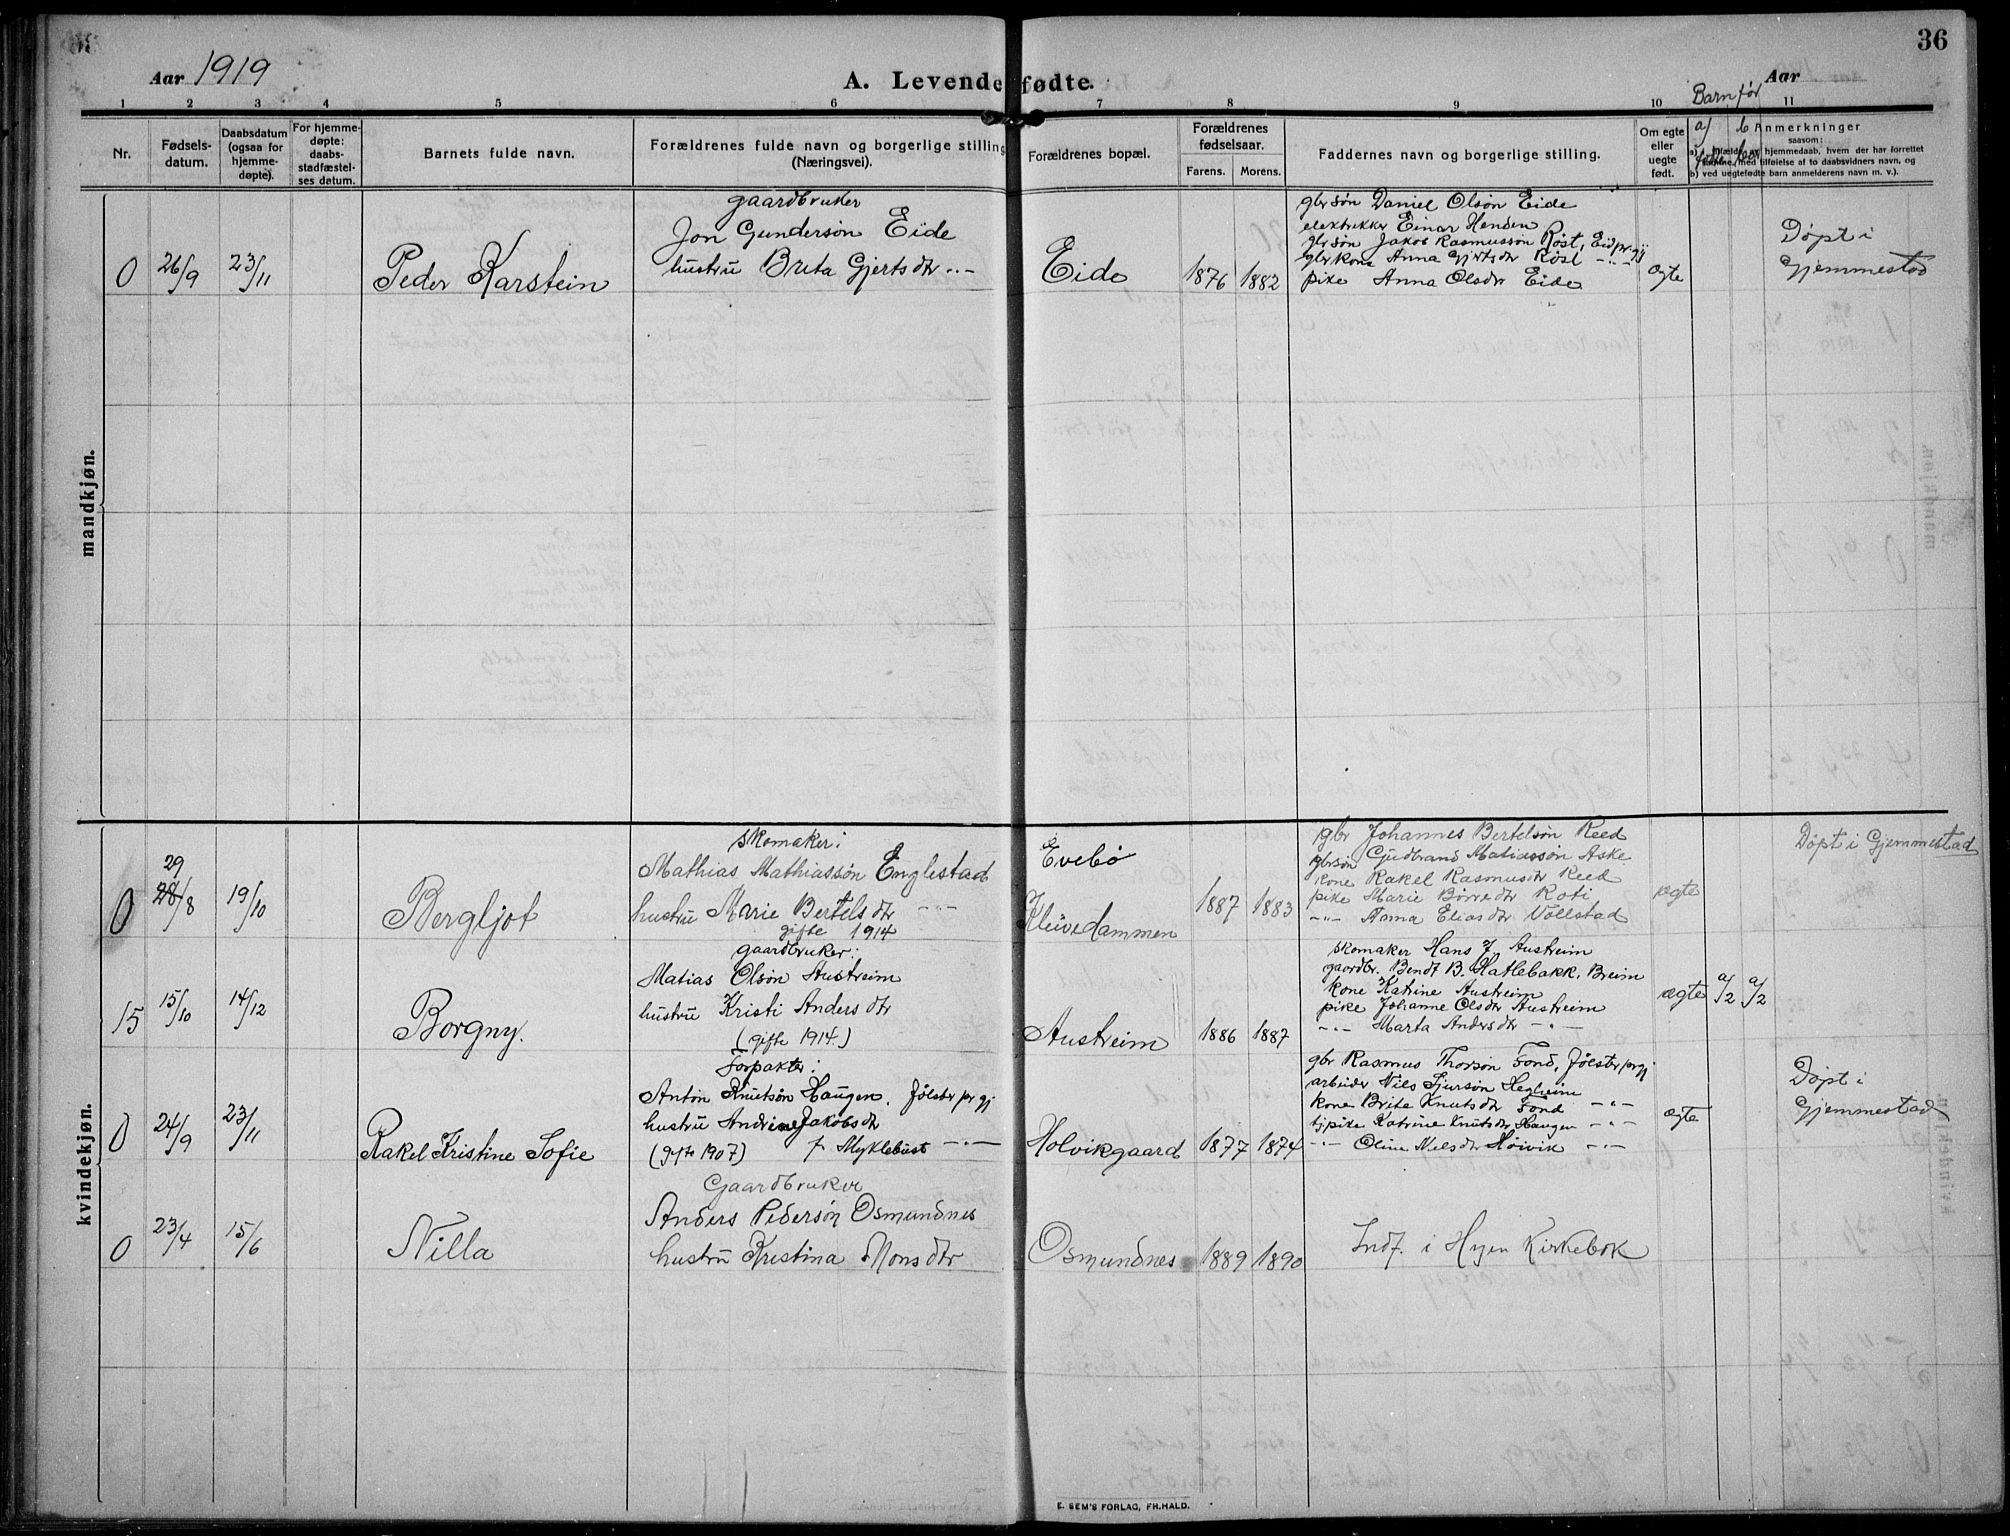 Aar 1919
A. Levendefødte.
Aar
36
Barn før
1 2 3 4 5 6 7 8 9 10 11
Nr.
Fødsels-
datum.
Daabsdatum
(ogsaa for
hjemme-
døpte).
For hjemme-
døpte:
daabs-
stadfæstel-
ses datum.
Barnets fulde navn.
Forældrenes fulde navn og borgerlige stilling
(Næringsvei).
Forældrenes bopæl.
Forældrenes
fødselsaar.
Farens. Morens.
Faddernes navn og borgerlige stilling.
Om egte
eller
uegte
født.
a) b
Anmerkninger
saasom:
hjemmedaab, hvem der har forrettet
samme, med tilføielse af to daabsvidners navn, og
b) ved uegtefødte barn anmelderens navn m. v.).
mandkjøn.
0 26/9 23/11
Peder Karstein
gaardbruker
Jon Gundersøn Eide
hustru Brita Gjertsdtr -"-
Eide
1876 1882
gbrsøn Daniel Olsøn Eide
elektrikker Einar Henden
gbrsøn Jakob Rasmussøn Röst, Eid prgj
gbrkone Anna Gjertsdtr Röst -"-
pike Anna Olsdtr Eide
egte
Døpt i
Gjemmestad
kvindekjøn.
29
0 28/8 19/10
Bergljot
skomaker:
Mathias Mathiassøn Englestad
hustru Marie Bertelsdtr -"-
gifte 1914
Evebø
Kleivedammen
1887 1883
gbr Johannes Bertelsøn Reed
gbrsøn Gudbrand Matiassøn Aske
kone Rakel Rasmusdtr Reed
pike Marie Börredtr Roti
-"- Anna Eliasdtr Vollstad
egte
Døpt i Gjemmestad
15 15/10 14/12
Borgny.
gaardbruker:
Matias Olsøn Austreim
hustru Kristi Andersdtr
(gifte 1914.)
Austreim
1886 1887
skomaker Hans J. Austreim
gaardbr. Bendt B. Hatlebakk, Breim
kone Katrine Austreim
pike Johanne Olsdtr Austreim
-"- Marta Andersdtr -"-
egte a/2 a/2
0 24/9 23/11
Rakel Kristine Sofie
Forpakter:
Anton Knutsøn Haugen. Jølster prgj
hustru Andrine Jakobsdtr
(gifte 1907) f. Myklebust -"-
Holvikgaard
1877 1874
gbr Rasmus Thorsøn Fond, Jølster prgj
arbeider Nils Sjursøn Hegheim
kone Brite Knutsdtr Fond -"-
tj.pike Katrine Knutsdtr Haugen -"-
-"- Oline Nielsdtr Høivik -"-
egte
Døpt i
Gjemmestad
0 23/4 15/6
Nilla
Gaardbruker
Anders Pedersøn Osmundnes
hustru Kristina Monsdtr
Osmundnes
1889 1890
Indf. i Hyen Kirkebok
E. SEM'S FORLAG, FR.HALD.